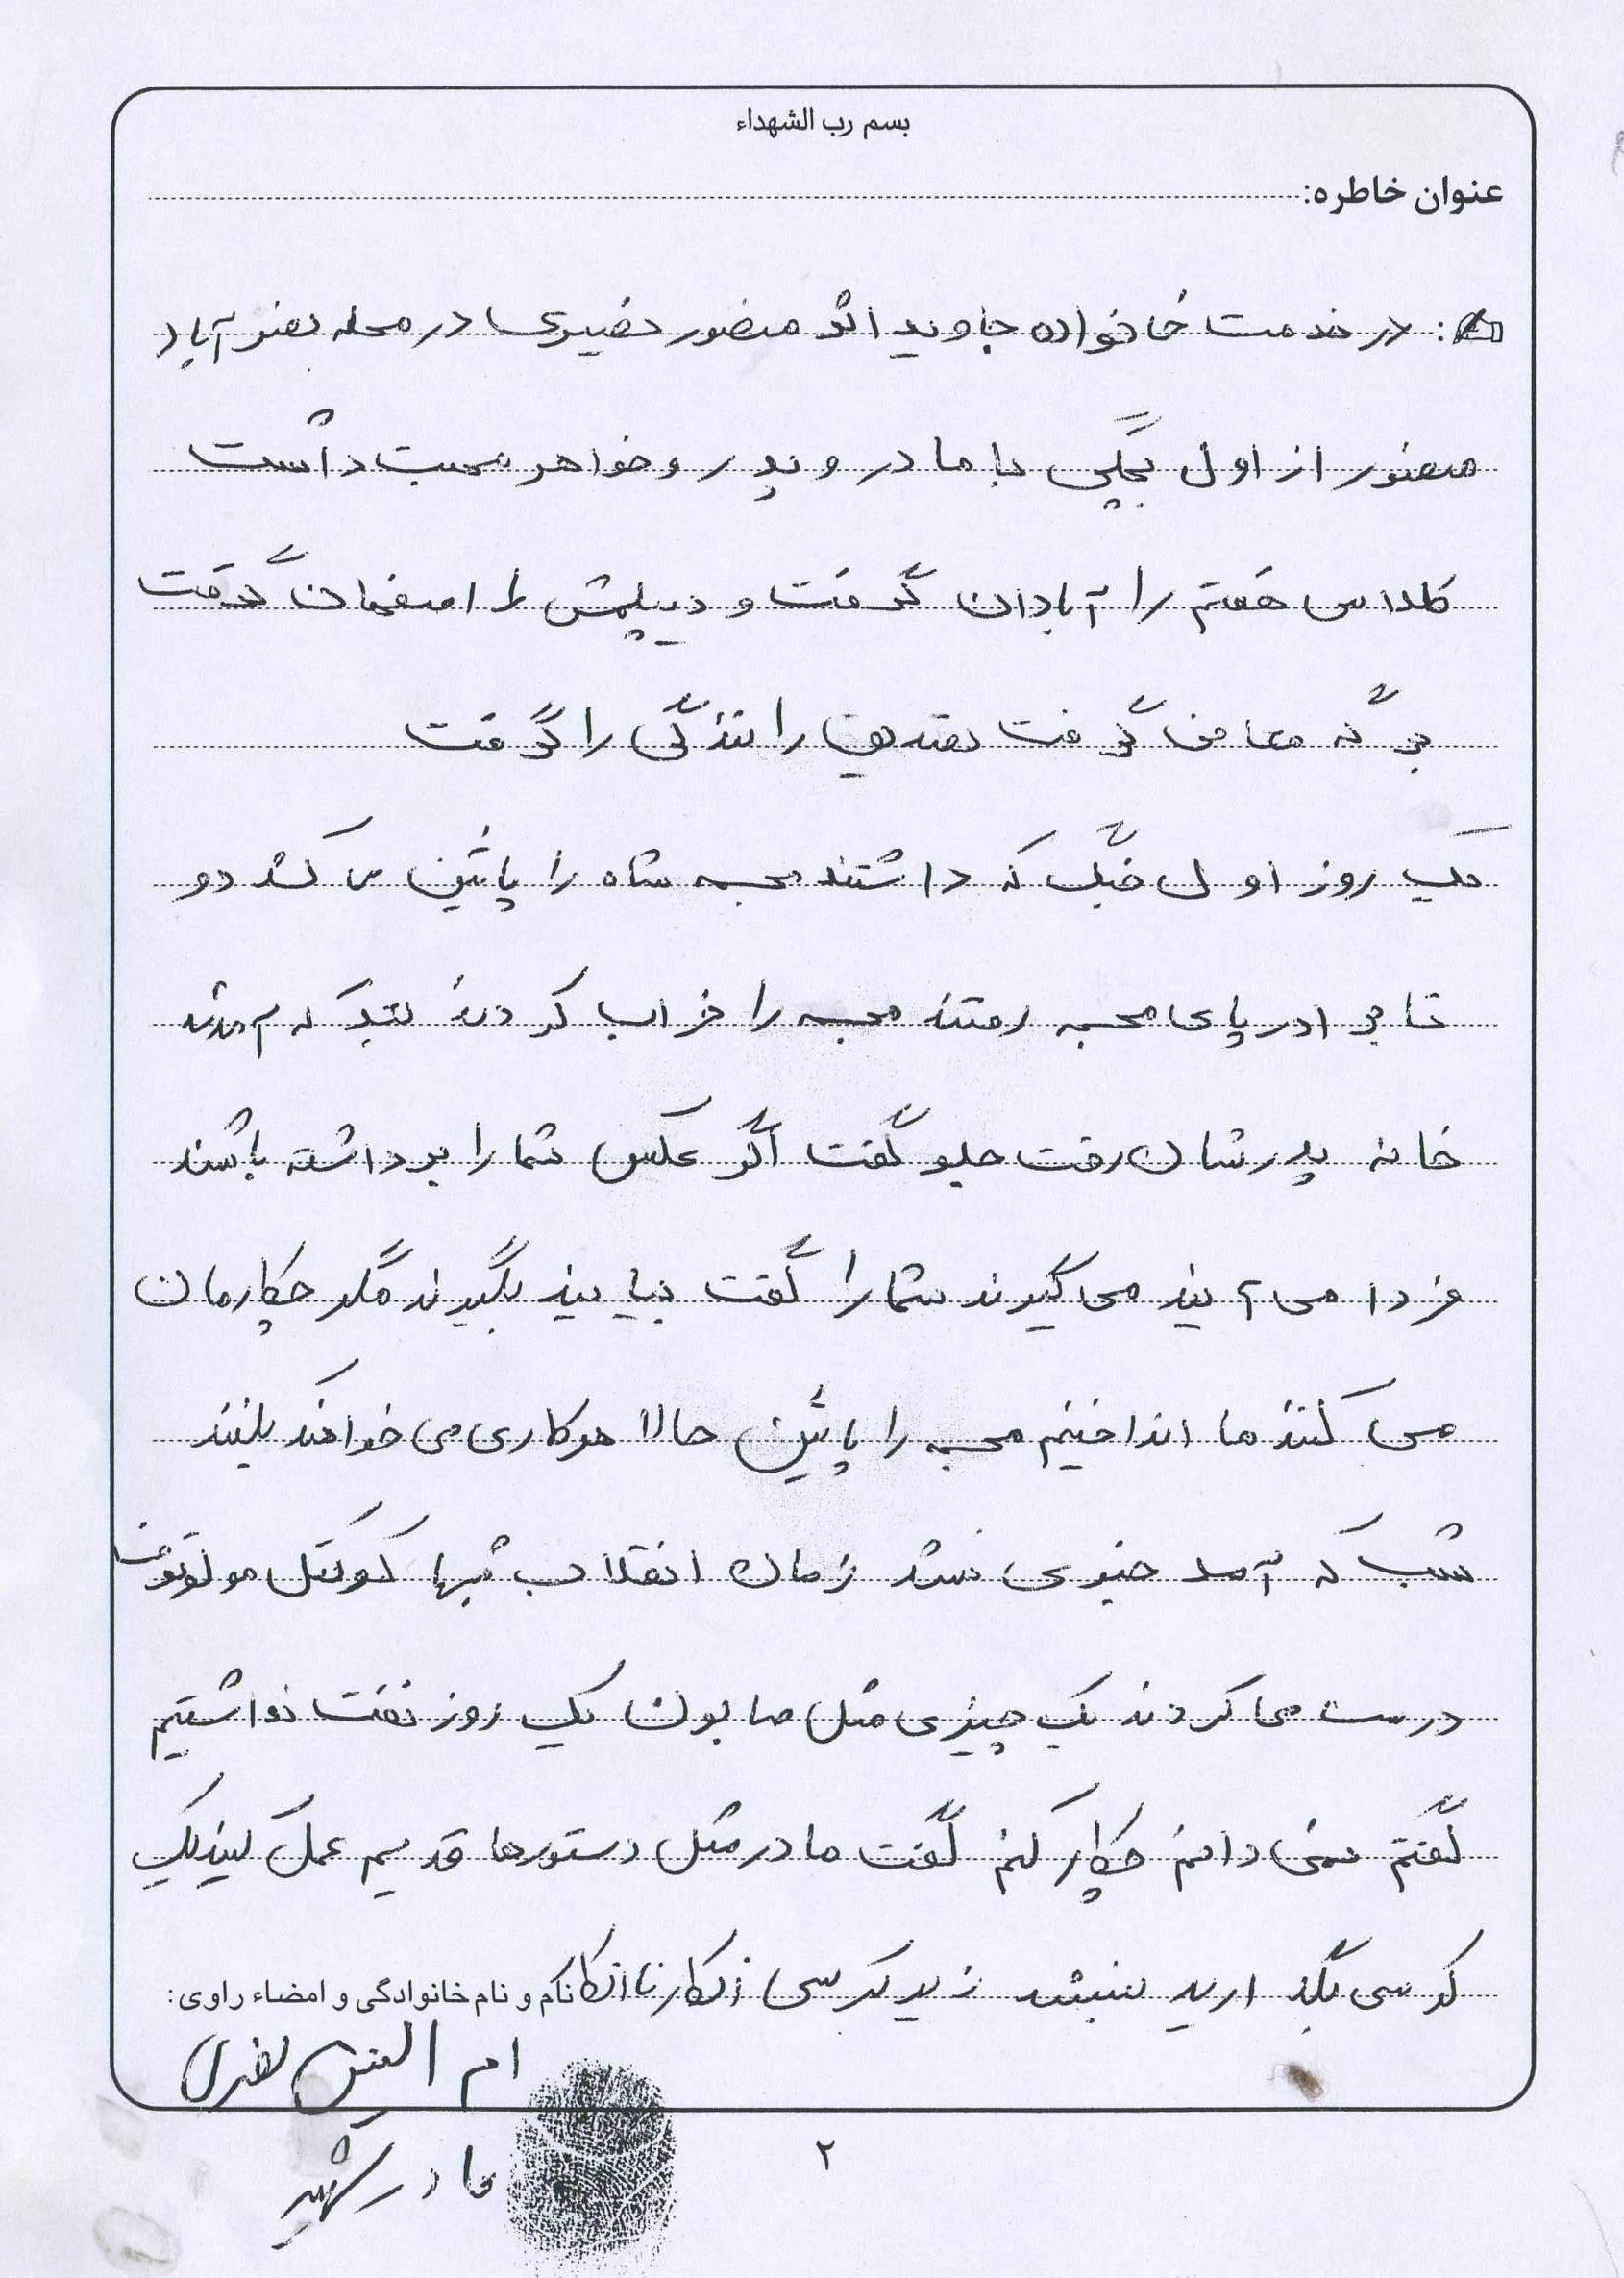 بسم رب الشهداء
عنوان خاطره:
در خدمت خانواده جاوید اثر منصور نصیری در محله نصر آباد
منصور از اول بچگی با مادر و پدر و خواهر محبت داشت
کلاس هفتم را آبادان گرفت و دیپلمش را اصفهان گرفت
برگه معاف گرفت تصدیق رانندگی را گرفت
یک روز اول جنگ که داشتند مجسمه شاه را پائین می کشد و
تا برادر پای مجسمه رفتند مجسمه را خراب کردند شب که آمدند
خانه پدرشان رفت جلو گفت اگر عکس شما را برداشته باشند
فردا می آیند می گیرند شما را گفت بیایند بگیرند مگر چکارمان
می کنند ما انداختیم مجسمه را پائین حالا هر کاری می خواهند بکنند
شب که آمد خبری نشد زمان انقلاب شبها کوکتل مولوتوف
درست می کردند یک چیزی مثل صابون یک روز نفت نداشتیم
گفتم نمی دانم چکار کنم گفت مادر مثل دستورها قدیم عمل کنید یک
کرسی بگذارید بنشیند زیر کرسی
نام و نام خانوادگی و امضاء راوی:
ام البنین
مادر شهید
۲